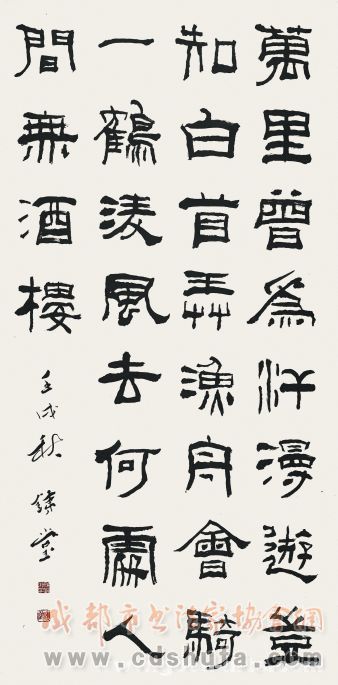 萬里曾為汗漫遊豈
知白首弄漁舟會騎
一鶴淩風去何處人
間無酒樓
壬戌秋 堂
成都市书法家协会网
www.cdshufa.com